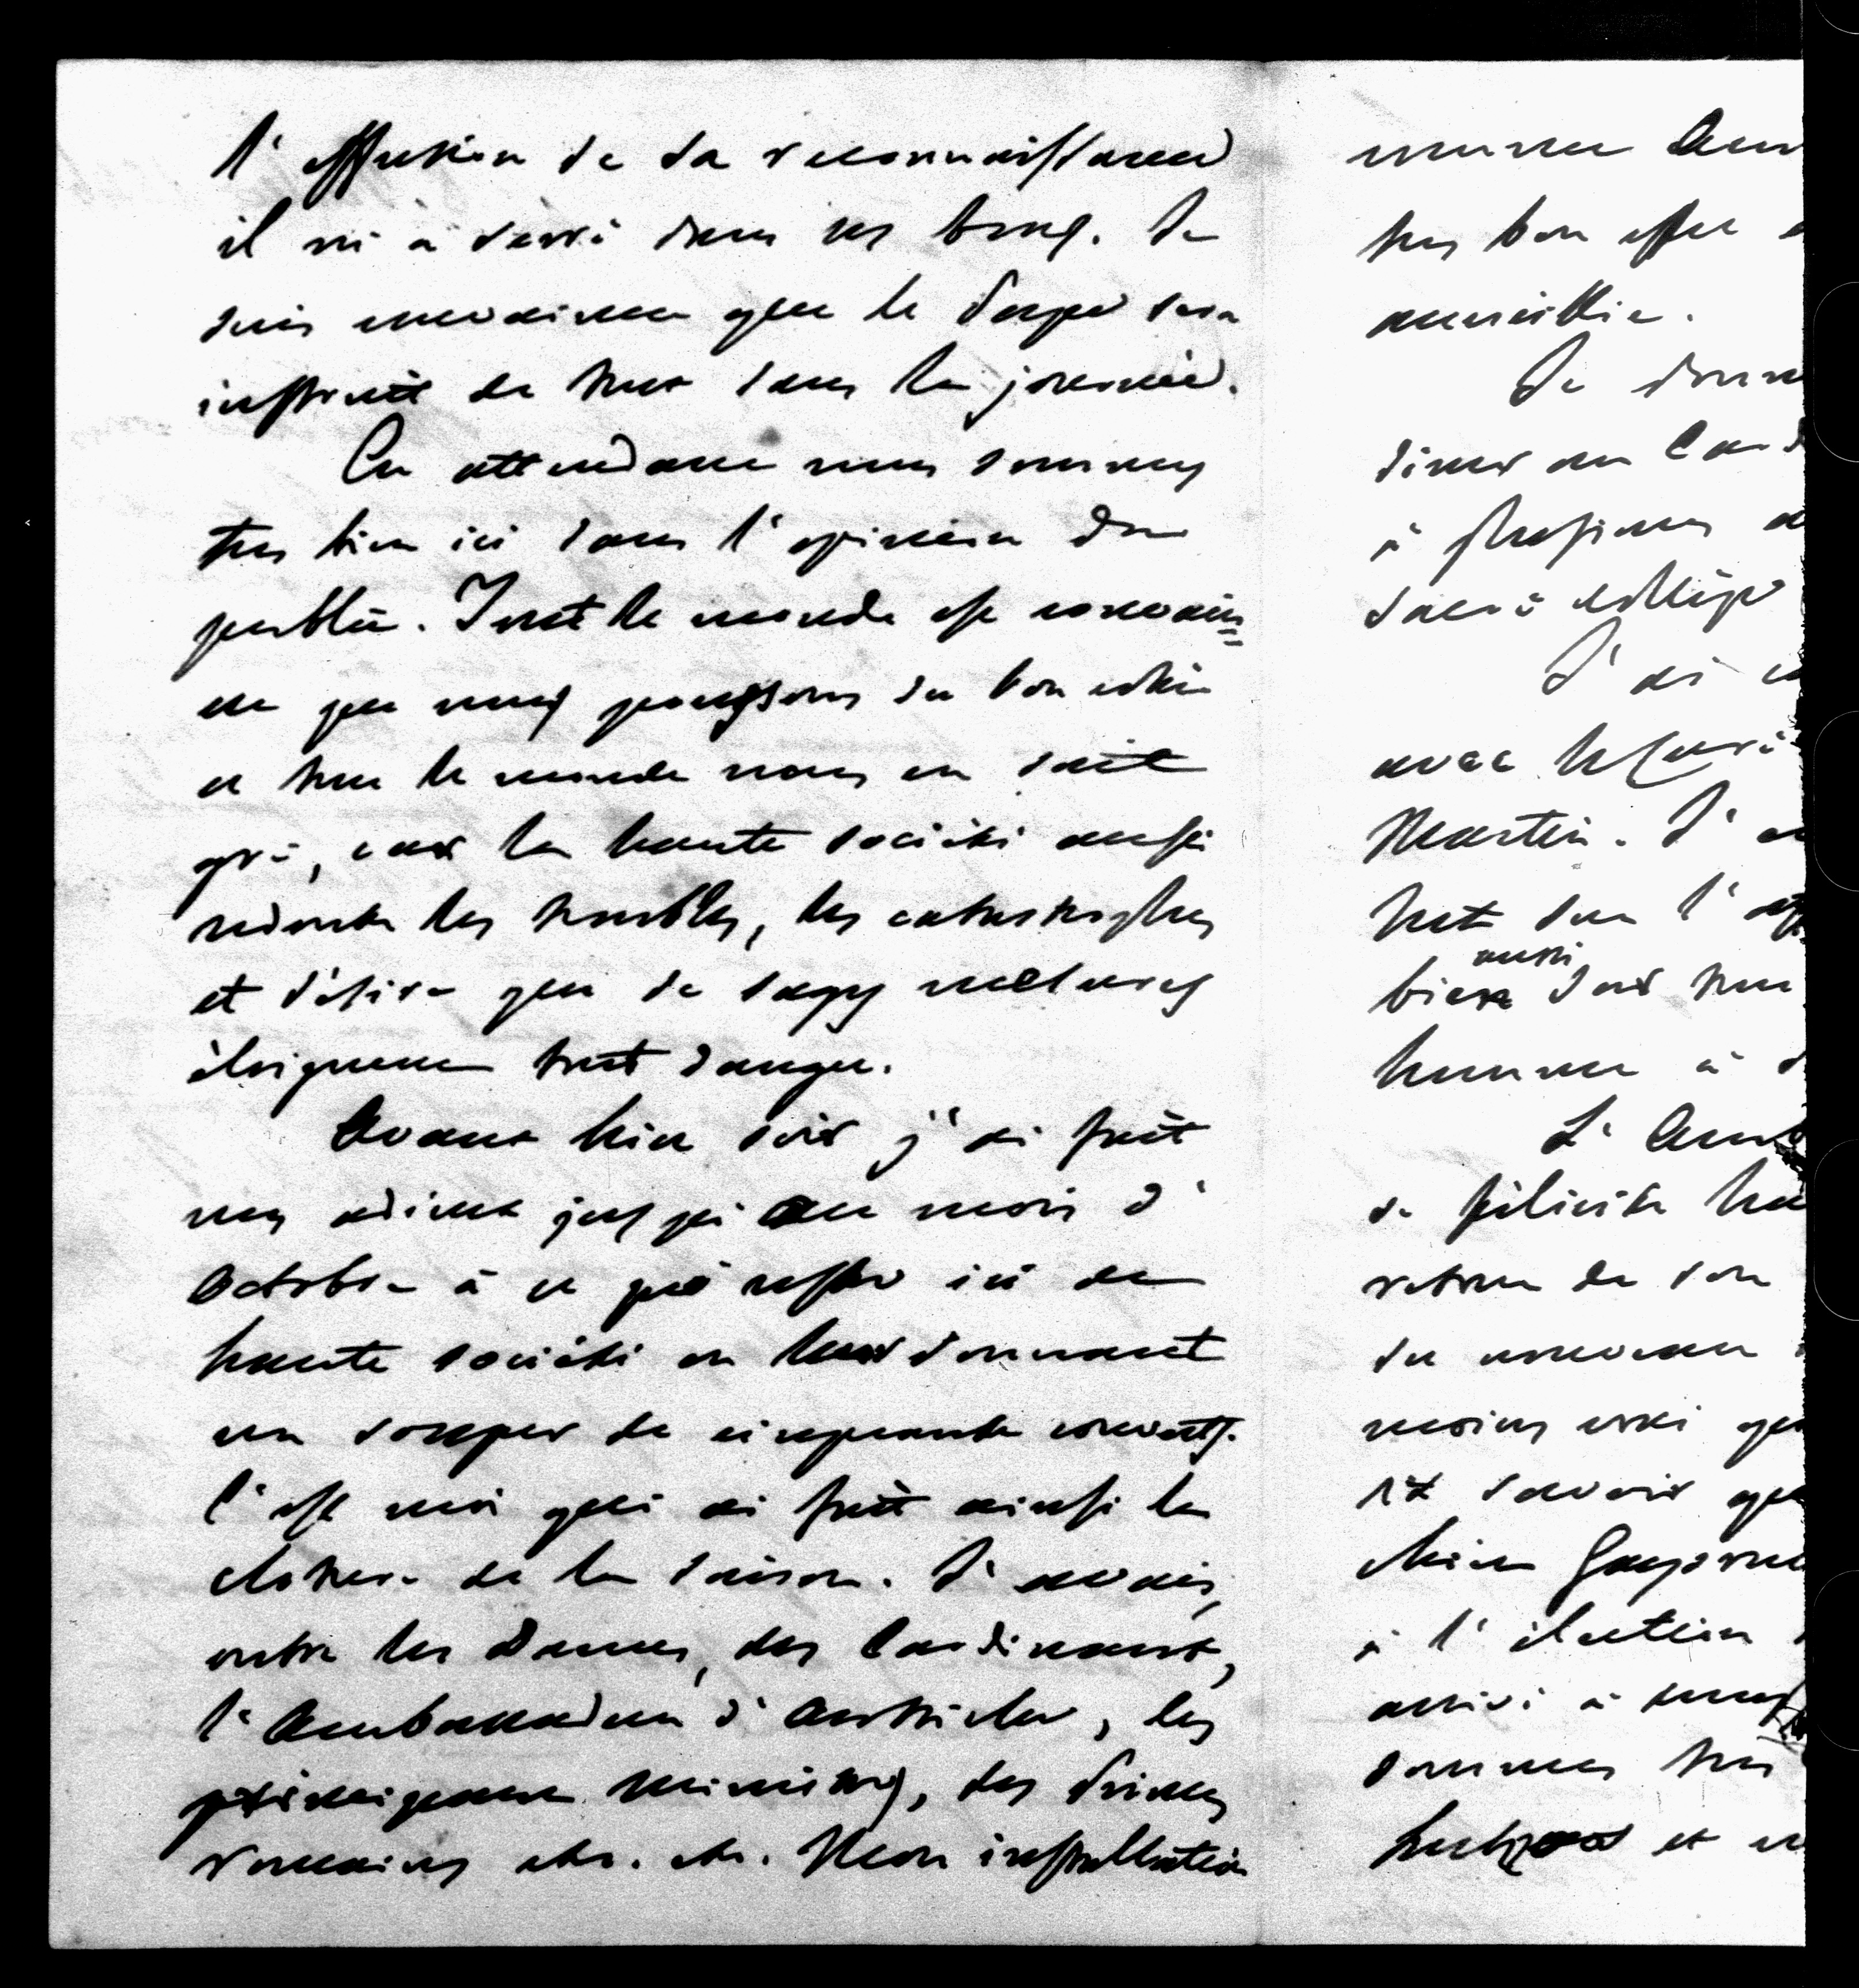 l'effusion de sa reconnaissance
il m'a serré dans ses bras. Je
suis convaincu que le Pape sera
instruit de tout dans la journée.
En attendant nous sommes
tres bien ici dans l'opinion du
public. Tout le monde est convain=
cu que nous poussons du bon côté
et tout le monde nous en sait
gré, car la haute société aussi
redoute les troubles, les catastrophes
et désire que de sages mesures
éloignent tout danger.
Avant hier soir j'ai fait
mes adieux jusqu'au mois d'
Octobre à ce qui reste ici de
haute société en leur donnant
un souper de cinquante couverts.
C'est moi qui ai fait ainsi la
cloture de la saison. J'avais,
outre les Dames, des Cardinaux,
l'Ambassadeur d'Autriche, les
principaux Ministres, des Princes
romains etc. etc. Mon installation
comme Am
tres bon effet
accueillie.
Je donne
diner au Card
à plusieurs
sacré collège
J'ai
avec le Curé
Martin. J'
tout sur l'
aussi
bien
homme à
L'Amb
se félicite
retour de son
du nouveau
moins
savoir
chien
à l'élection
arrivé à
sommes tres
et